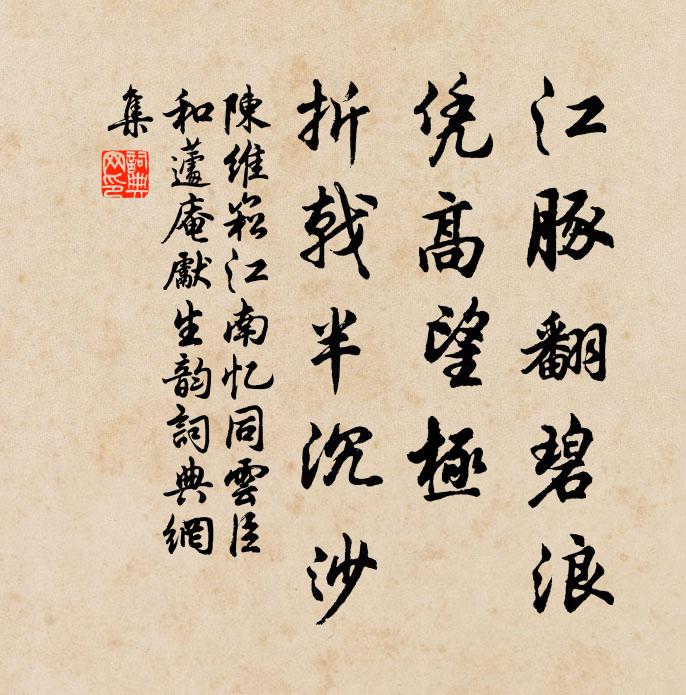 江豚翻碧浪
凭高望極
折戟半沉沙
陳維崧江南忆同雲臣
和蘧庵獻生韵詞典網
集
詞典
网印